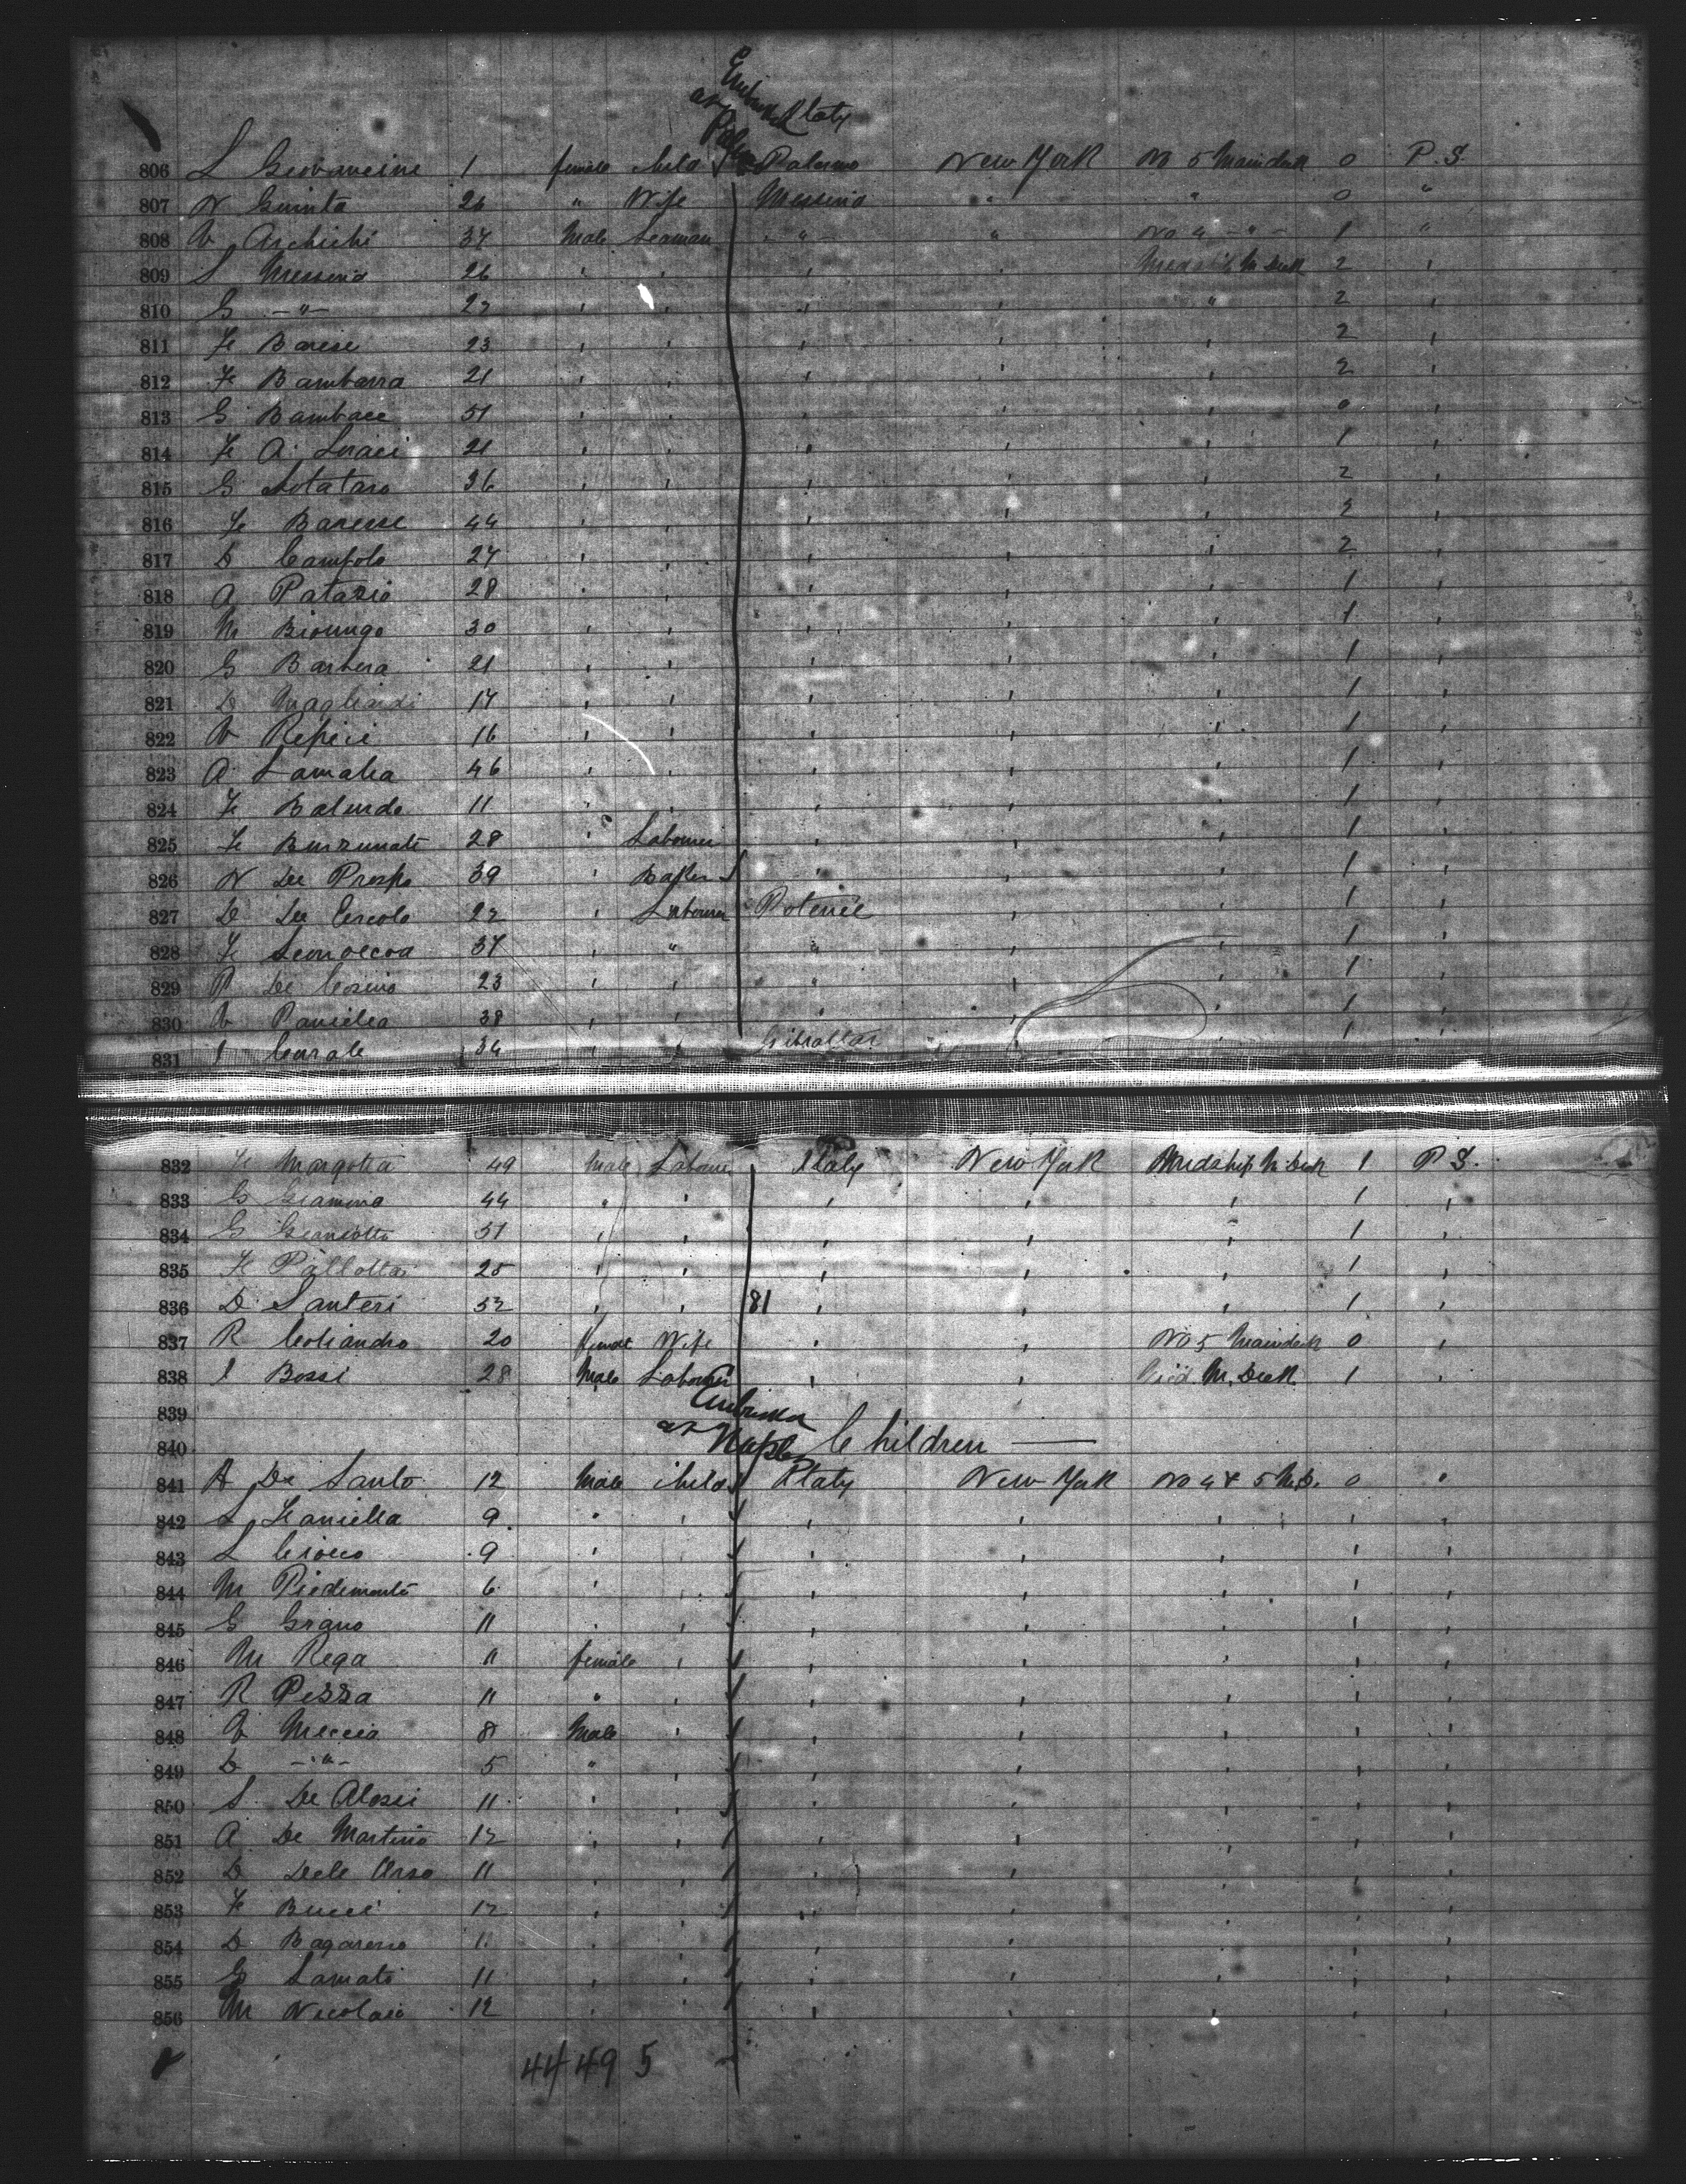 Embarked at Palermo Italy
806 L Giovancine 1 female child Palermo New York No 5 Maindeck 0 P.S.
807 N Guinta 26 " Wife Messina " " 0 "
808 V Archichi 37 Male Seaman - " - " No 4 - " - 1 "
809 S Messina 26 " " " " Midship M Deck 2 "
810 G - " - 27 " " " " " 2 "
811 F Barese 23 " " " " " 2 "
812 F Bambara 21 " " " " " 2 "
813 G Bambace 51 " " " " " 0 "
814 F A. 21 " " " " " 1 "
815 G 36 " " " " " 2 "
816 F Barese 44 " " " " " 2 "
817 D Campolo 27 " " " " " 2 "
818 A Patazio 28 " " " " " 1 "
819 M 30 " " " " " 1 "
820 G Barbera 21 " " " " " 1 "
821 D Magliardi 17 " " " " " 1 "
822 V Repici 16 " " " " " 1 "
823 A. Lamalia 46 " " " " " 1 "
824 F 11 " " " " " 1 "
825 F 28 " Labourer " " " 1 "
826 N De Prospo 39 " Baker " " " 1 "
827 D De 22 " Labourer " " 1 "
828 F 37 " " " " " 1 "
829 P De Cosimo 23 " " " " " 1 "
830 V 38 " " " " " 1 "
831 34 " " Gibraltar " " 1 "
832 F Margotta 49 Male Labourer Italy New York Midship M Deck 1 P.S.
833 G Giamino 44 " " " " " 1 "
834 G Gianiotto 51 " " " " " 1 "
835 F Pallotta 25 " " " " " 1 "
836 D Santeri 52 " " 81 " " " 1 "
837 R Coliandro 20 Female Wife " " No 5 Maindeck 0 "
838 I Bossi 28 Male Labourer " " M. Deck 1 "
839
840 Embarked at Naples Children —
841 A De Santo 12 Male Child Italy New York No 4 & 5 M.D. 0 "
842 L Faniella 9 " " " " " " "
843 L Ciocco 9 " " " " " " "
844 M Piedimonte 6 " " " " " " "
845 G Grano 11 " " " " " " "
846 M Rega 11 female " " " " " "
847 R Pezza 11 " " " " " " "
848 V Meccia 8 Male " " " " " "
849 D - " - 5 " " " " " " "
850 S De Alosii 11 " " " " " " "
851 A De Martino 12 " " " " " " "
852 D Dele Orso 11 " " " " " " "
853 F Bucci 12 " " " " " " "
854 D 11 " " " " " " "
855 G Lamato 11 " " " " " " "
856 M Nicolaio 12 " " " " " " "
44 49 5